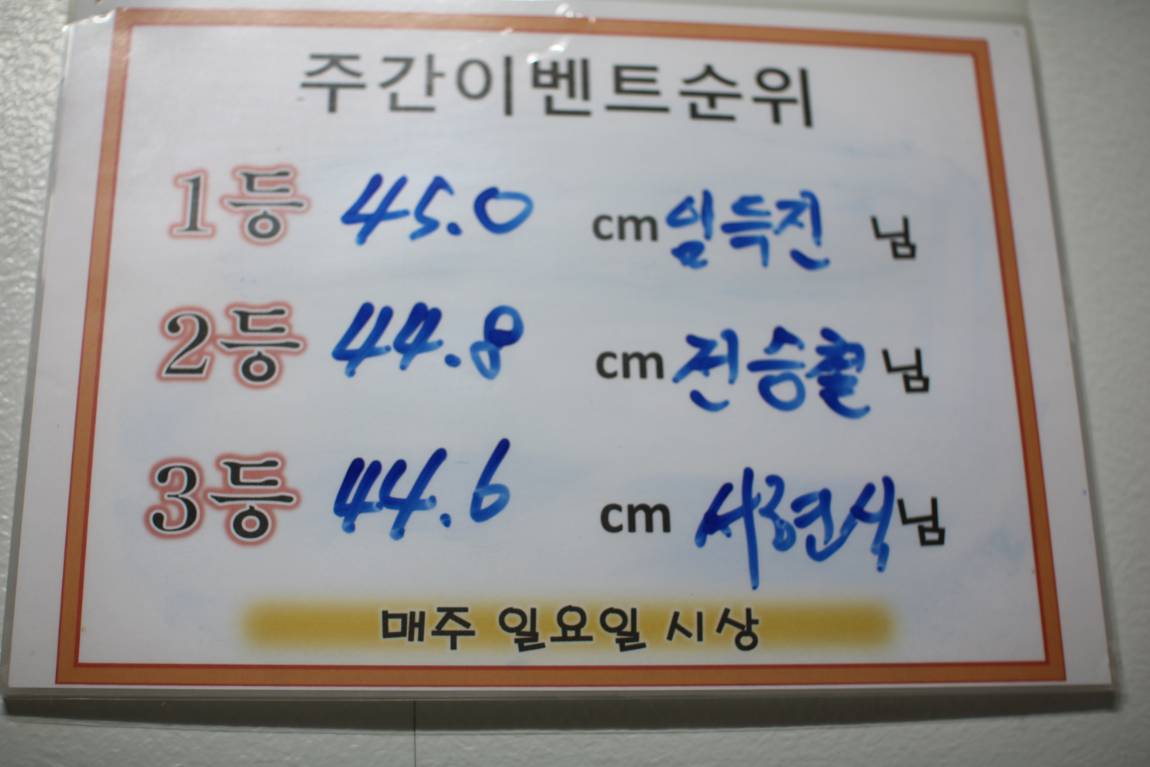 주간이벤트순위
1등 45.0 cm 임득진 님
2등 44.8 cm 전승훈 님
3등 44.6 cm 서현식 님
매주 일요일 시상